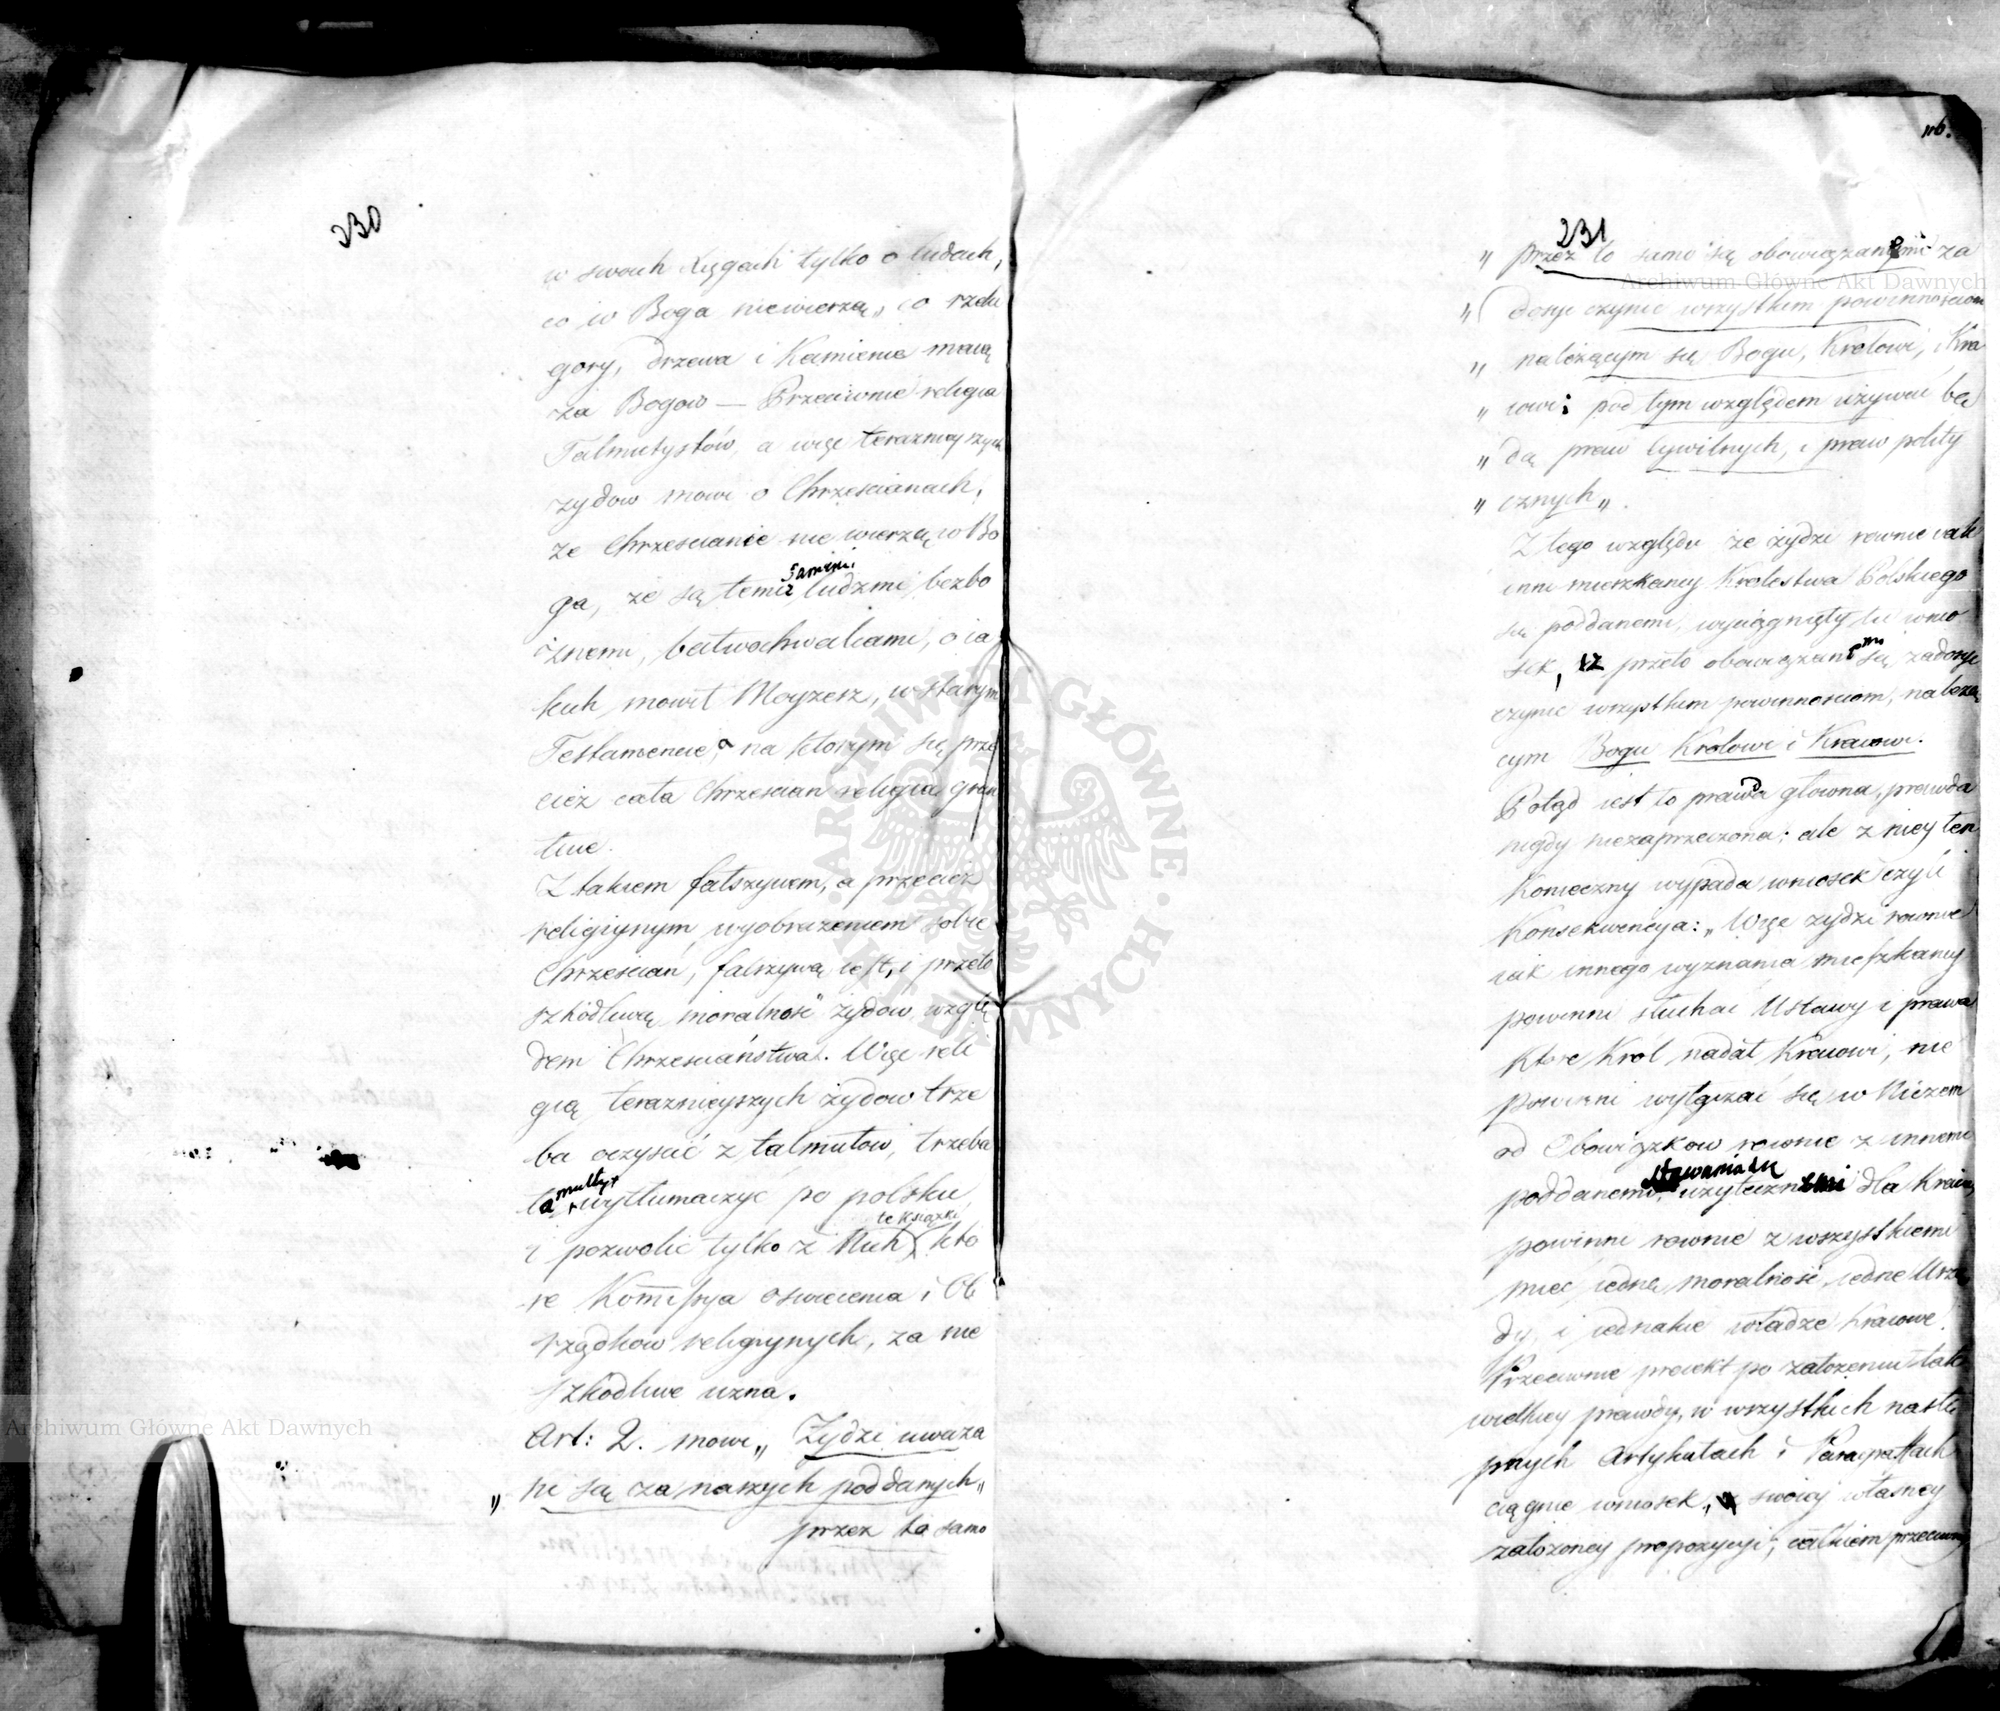 230
w swoich Księgach tylko o ludach,
co w Boga niewierzą, co rzeki
gory, drzewa i Kamienie maią
za Bogow — Przeciwnie religia
Talmutystów, a więc teraznieyszych
zydow mowi o Chrzescianach,
ze Chrzescianie nie wierzą w Bo
ga, że są temi samemi ludzmi bezbo
żnemi, bałwochwalcami, o ia
kich mowił Moyzesz, w starym
Testamencie, a na ktorym się prze
cież cała Chrzescian religia grun
tuie.
Z takiem fałszywem, a przecież
religiynym wyobrażeniem sobie
Chrzescian, falszywą iest, i przeto
szkodliwą moralnosc żydow wzglę
dem Chrzesciaństwa. Więc reli
gią teraznieyszych żydow trze
ba oczyscić z talmutow, trzeba
talmuty wytłumaczyć po polsku
i pozwolic tylko z Nich te książki kto
re Kommissya oswiecenia i Ob
rządkow religiynych, za nie
szkodliwe uzna.
Art: 2. mowi „ Żydzi uważa
„ ni są za naszych poddanych„
przez to samo
116.
231
„ przez to samo są obowiązanemi za
„ dosyc czynic wszystkim powinnosciom
„ należącym się Bogu, Krolowi, i Kra
„ iowi; pod tym względem używać bę
„ dą praw Cywilnych, i praw polity
„ cznych„.
Z tego względu że żydzi rownie iak
inni mieszkancy Krolestwa Polskiego
są poddanemi, wyciągnięty tu wnio
sek, iż przeto obowiązanemi są zadosyc
czynic wszystkim powinnosciom, należą
cym Bogu Krolowi i Kraiowi.
Potąd iest to prawda głowna, prawda
nigdy niezaprzeczona; ale z niey ten
Konieczny wypada wniosek czyli
Konsekwencya: „Więc zydzi rownie
iak innego wyznania mieszkancy
powinni słuchać Ustawy i prawa
Ktore Krol nadał Kraiowi, nie
powinni wyłączać się w Niczem
od Obowiązkow rownie z innemi
poddanemi, użytecznemi dla Kraiu,
powinni rownie z wszystkiemi
miec iedną moralnosc, iedne Urzę
dy, i iednakie władze Kraiowe.
Przeciwnie proiekt po założeniu tak
wielkiey prawdy, w wszystkich nastę
pnych Artykułach i Paragraffach
ciągnie wniosek, z swoiey własney
założoney propozycyi, całkiem przeciwny
Archiwum Główne Akt Dawnych
Archiwum Główne Akt Dawnych
ARCHIWUM GŁÓWNE AKT DAWNYCH